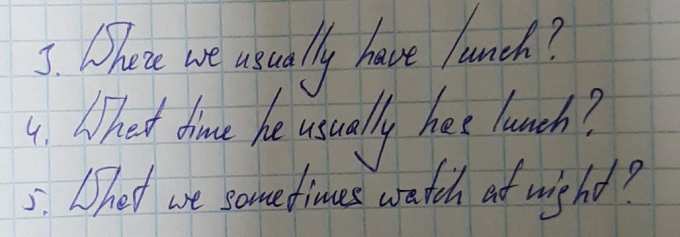 3. Where we usually have lunch?
4. What time he usually has lunch?
5. What we sometimes watch at night?